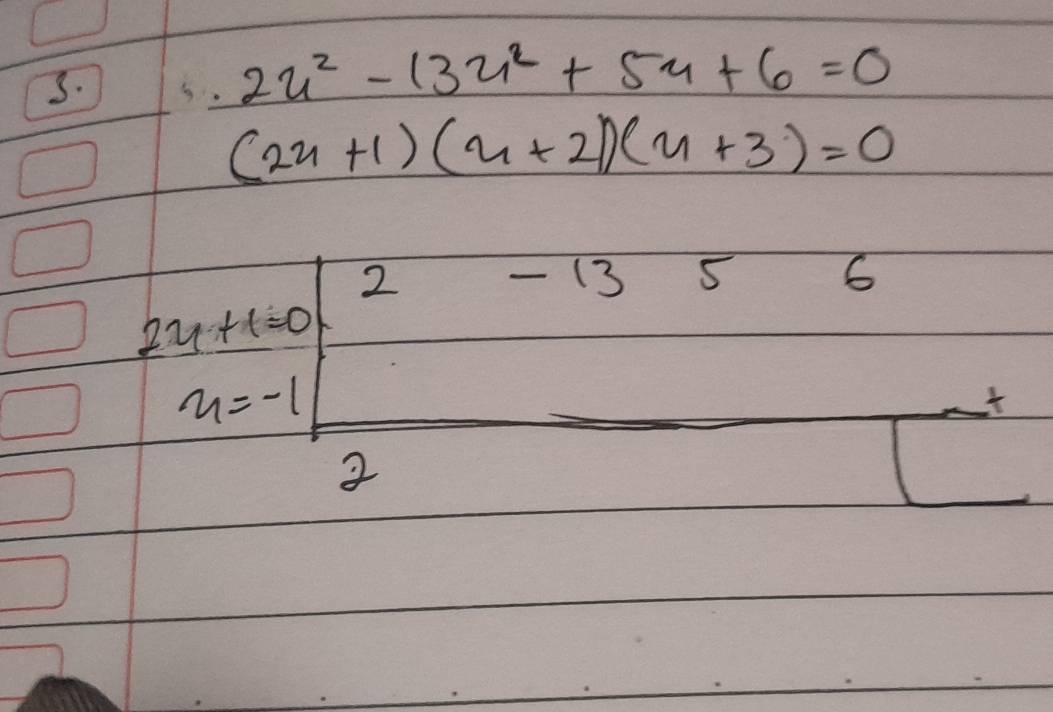 3. 2x² - 13x² + 5x + 6 = 0
(2x + 1) (x + 2)(x + 3) = 0
2 - 13 5 6
2x + 1 = 0
x = -1
+
2